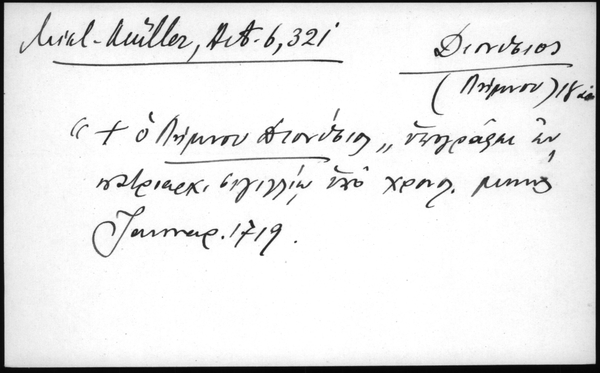 Mikl-Müller, Act. 6, 321
Διονύσιος
(Λήμνου) 18 αἰ
"+ ὁ Λήμνου Διονύσιος,, ὑπογράφει ἐν
πατριαρχ. σιγιλλίῳ ὑπὸ χρονολ. μηνὸς
Ἰανουαρ. 1719.